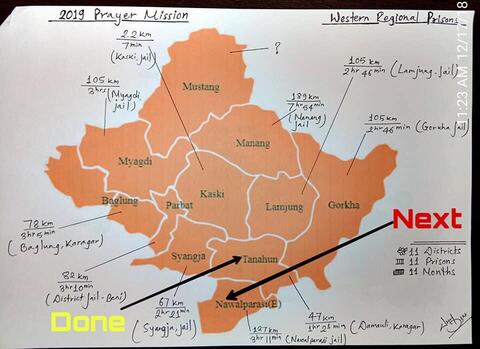 2019 Prayer Mission
Western Regional Prisons
11:23 AM 12/17/18
2.2 km
7 min
(Kaski, jail)
?
105 km
2 hr 46 min (Lamjung-jail)
105 km
3 hrs (Myagdi jail)
189 km
7 hr 54 min
(Manang jail)
105 km
2 hr 46 min (Gorkha jail)
Mustang
Manang
Myagdi
Baglung
Parbat
Kaski
Lamjung
Gorkha
Syangja
Tanahun
Nawalparasi(E)
78 km
3 hr 5 min
(Baglung, Karagar)
82 km
3 hr 10 min
(District Jail - Beni)
67 km
2 hr 21 min
(Syangja, jail)
127 km
3 hr 11 min (Nawalparasi jail)
47 km
1 hr 21 min (Damauli, Karagar)
Next
Done
11 Districts
11 Prisons
11 Months